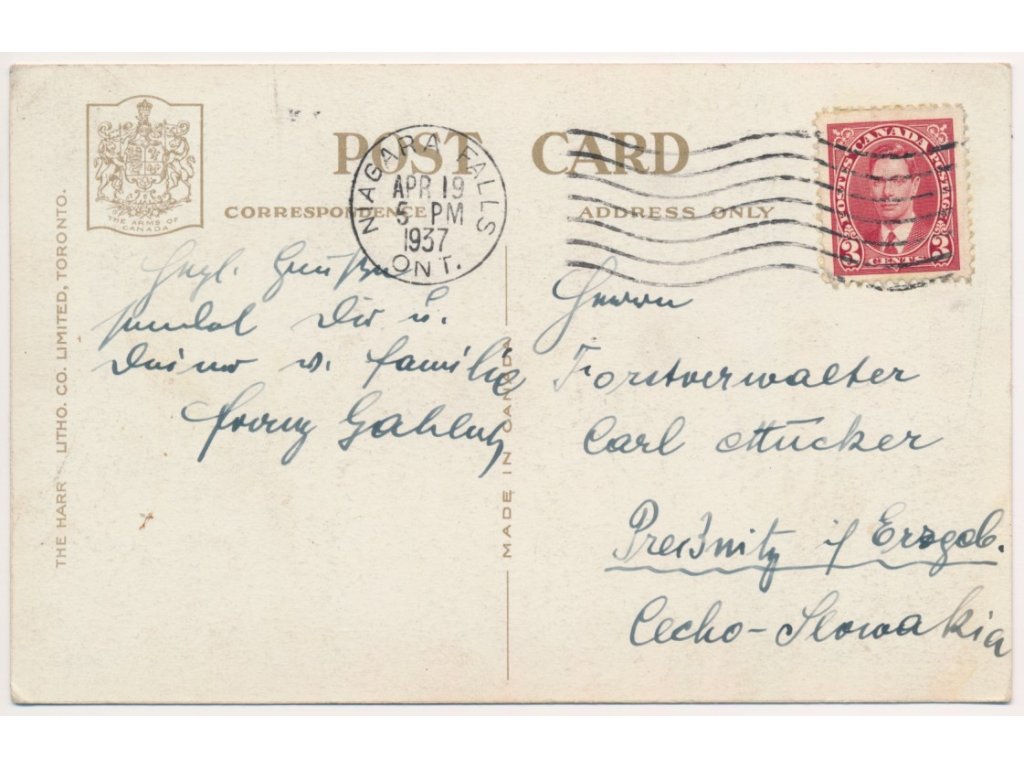 POST CARD
CORRESPONDENCE
ADDRESS ONLY
THE ARMS OF
CANADA
THE HARR LITHO. CO. LIMITED, TORONTO.
MADE IN CANADA
NIAGARA FALLS
APR 19
5 PM
1937
ONT.
CANADA
POSTES POSTAGE
3 CENTS 3
Herzl. Grüße
sendet Dir u.
Deiner w. Familie
Herrn
Forstverwalter
Carl Mücker
Preßnitz i/ Erzgeb.
Cecho-Slowakia